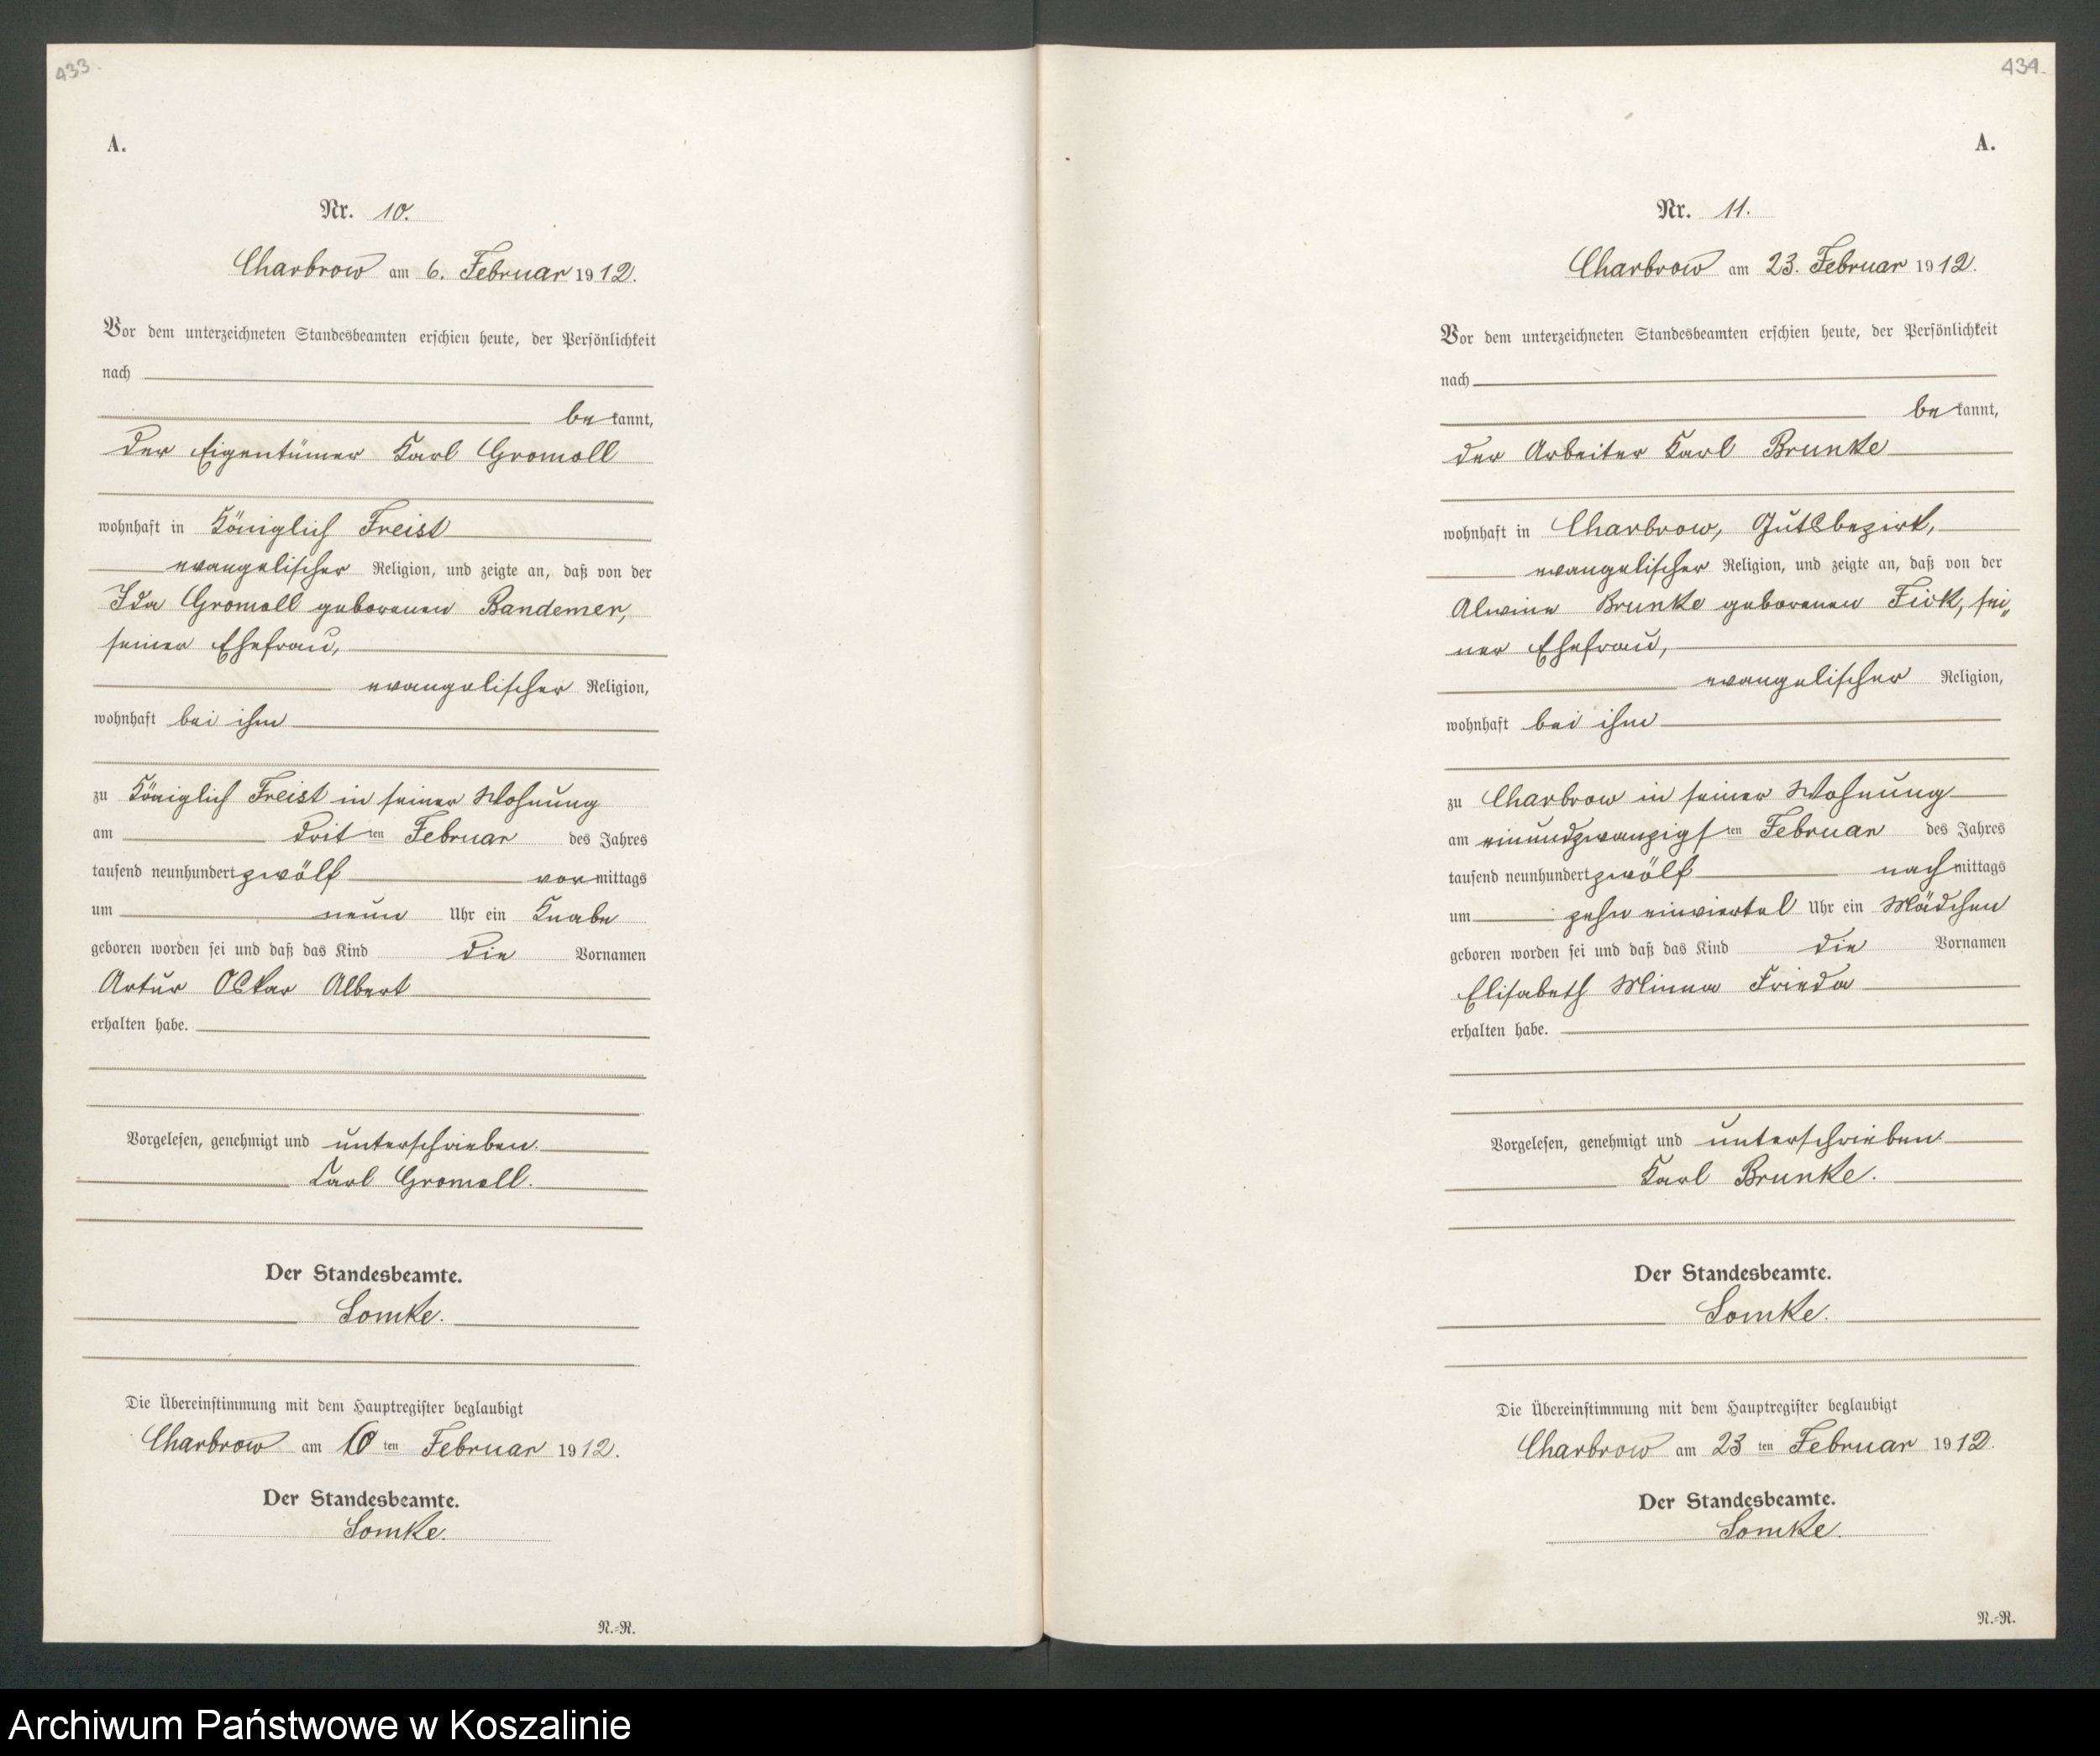 433.
A.
Nr. 10.
Charbrow am 6. Februar 1912.
Vor dem unterzeichneten Standesbeamten erschien heute, der Persönlichkeit
nach
bekannt,
der Eigentümer Karl Gromoll
wohnhaft in Königlich Freist
evangelischer Religion, und zeigte an, daß von der
Ida Gromoll geborenen Bandemer,
seiner Ehefrau,
evangelischer Religion,
wohnhaft bei ihm
zu Königlich Freist in seiner Wohnung
am dritten Februar des Jahres
tausend neunhundert zwölf vormittags
um neun Uhr ein Knabe
geboren worden sei und daß das Kind die Vornamen
Artur Oskar Albert
erhalten habe.
Vorgelesen, genehmigt und unterschrieben.
Karl Gromoll.
Der Standesbeamte.
Somke.
Die Übereinstimmung mit dem Hauptregister beglaubigt
Charbrow am 6ten Februar 1912.
Der Standesbeamte.
Somke.
N.=R.
434.
A.
Nr. 11.
Charbrow am 23. Februar 1912.
Vor dem unterzeichneten Standesbeamten erschien heute, der Persönlichkeit
nach
bekannt,
der Arbeiter Karl Brunke
wohnhaft in Charbrow, Gutsbezirk,
evangelischer Religion, und zeigte an, daß von der
Alwine Brunke geborenen Fick, sei„
ner Ehefrau,
evangelischer Religion,
wohnhaft bei ihm
zu Charbrow in seiner Wohnung
am einundzwanzigsten Februar des Jahres
tausend neunhundert zwölf nachmittags
um zehn einviertel Uhr ein Mädchen
geboren worden sei und daß das Kind die Vornamen
Elisabeth Minna Frieda
erhalten habe.
Vorgelesen, genehmigt und unterschrieben.
Karl Brunke.
Der Standesbeamte.
Somke.
Die Übereinstimmung mit dem Hauptregister beglaubigt
Charbrow am 23ten Februar 1912.
Der Standesbeamte.
Somke.
N.=R.
Archiwum Państwowe w Koszalinie